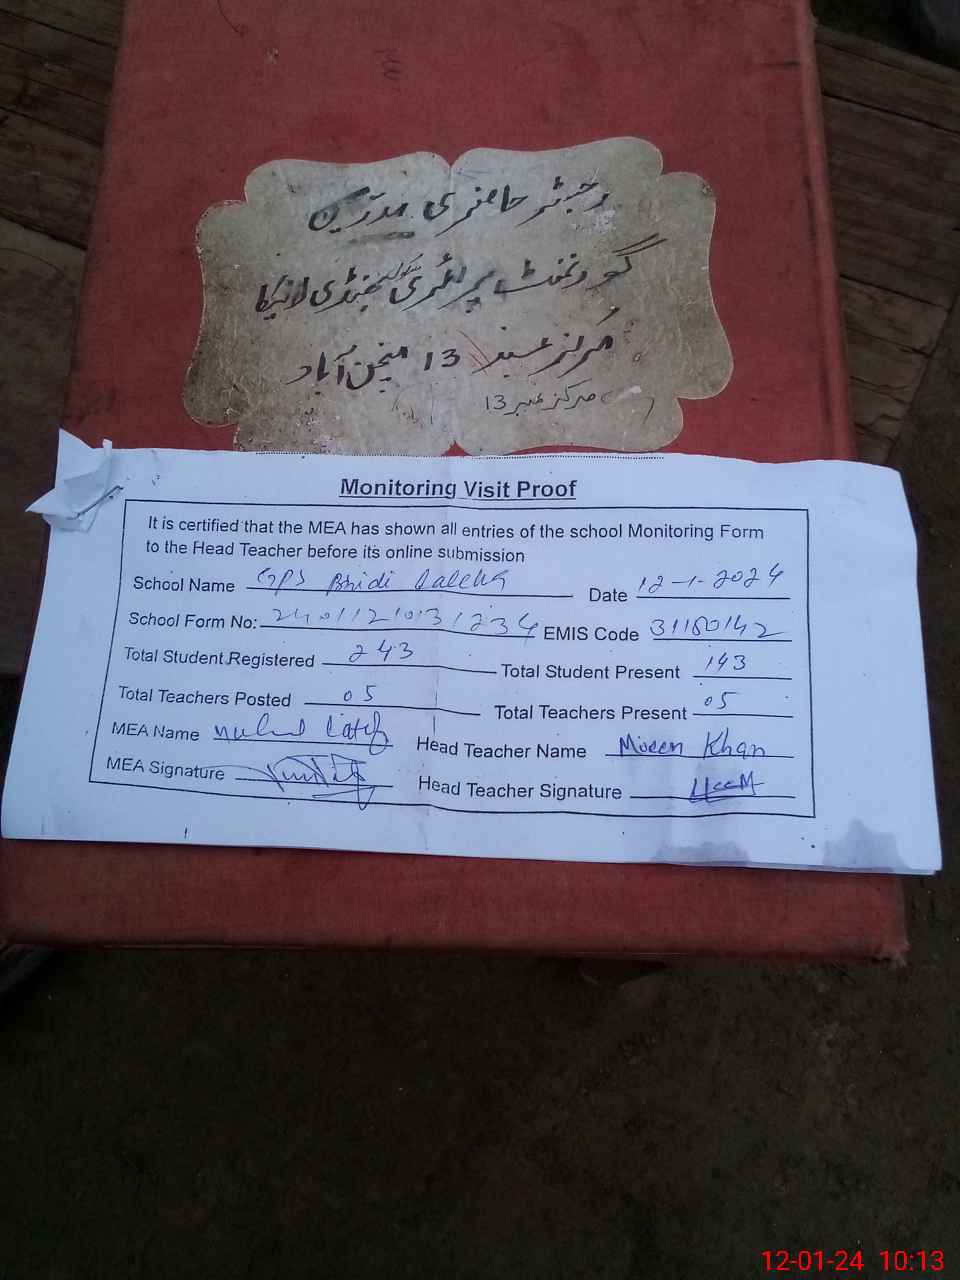 رجسٹر حاضری مدرسین
گورنمنٹ پرائمری سکول لالیکا
مرکز نمبر 13 منچن آباد
مرکز نمبر 13
Monitoring Visit Proof
It is certified that the MEA has shown all entries of the school Monitoring Form
to the Head Teacher before its online submission
School Name GPS Date 12-1-2024
School Form No: 24011210131234 EMIS Code 31180142
Total Student Registered 243 Total Student Present 143
Total Teachers Posted 05 Total Teachers Present 05
MEA Name Latif Head Teacher Name Moeen Khan
MEA Signature Head Teacher Signature
12-01-24 10:13